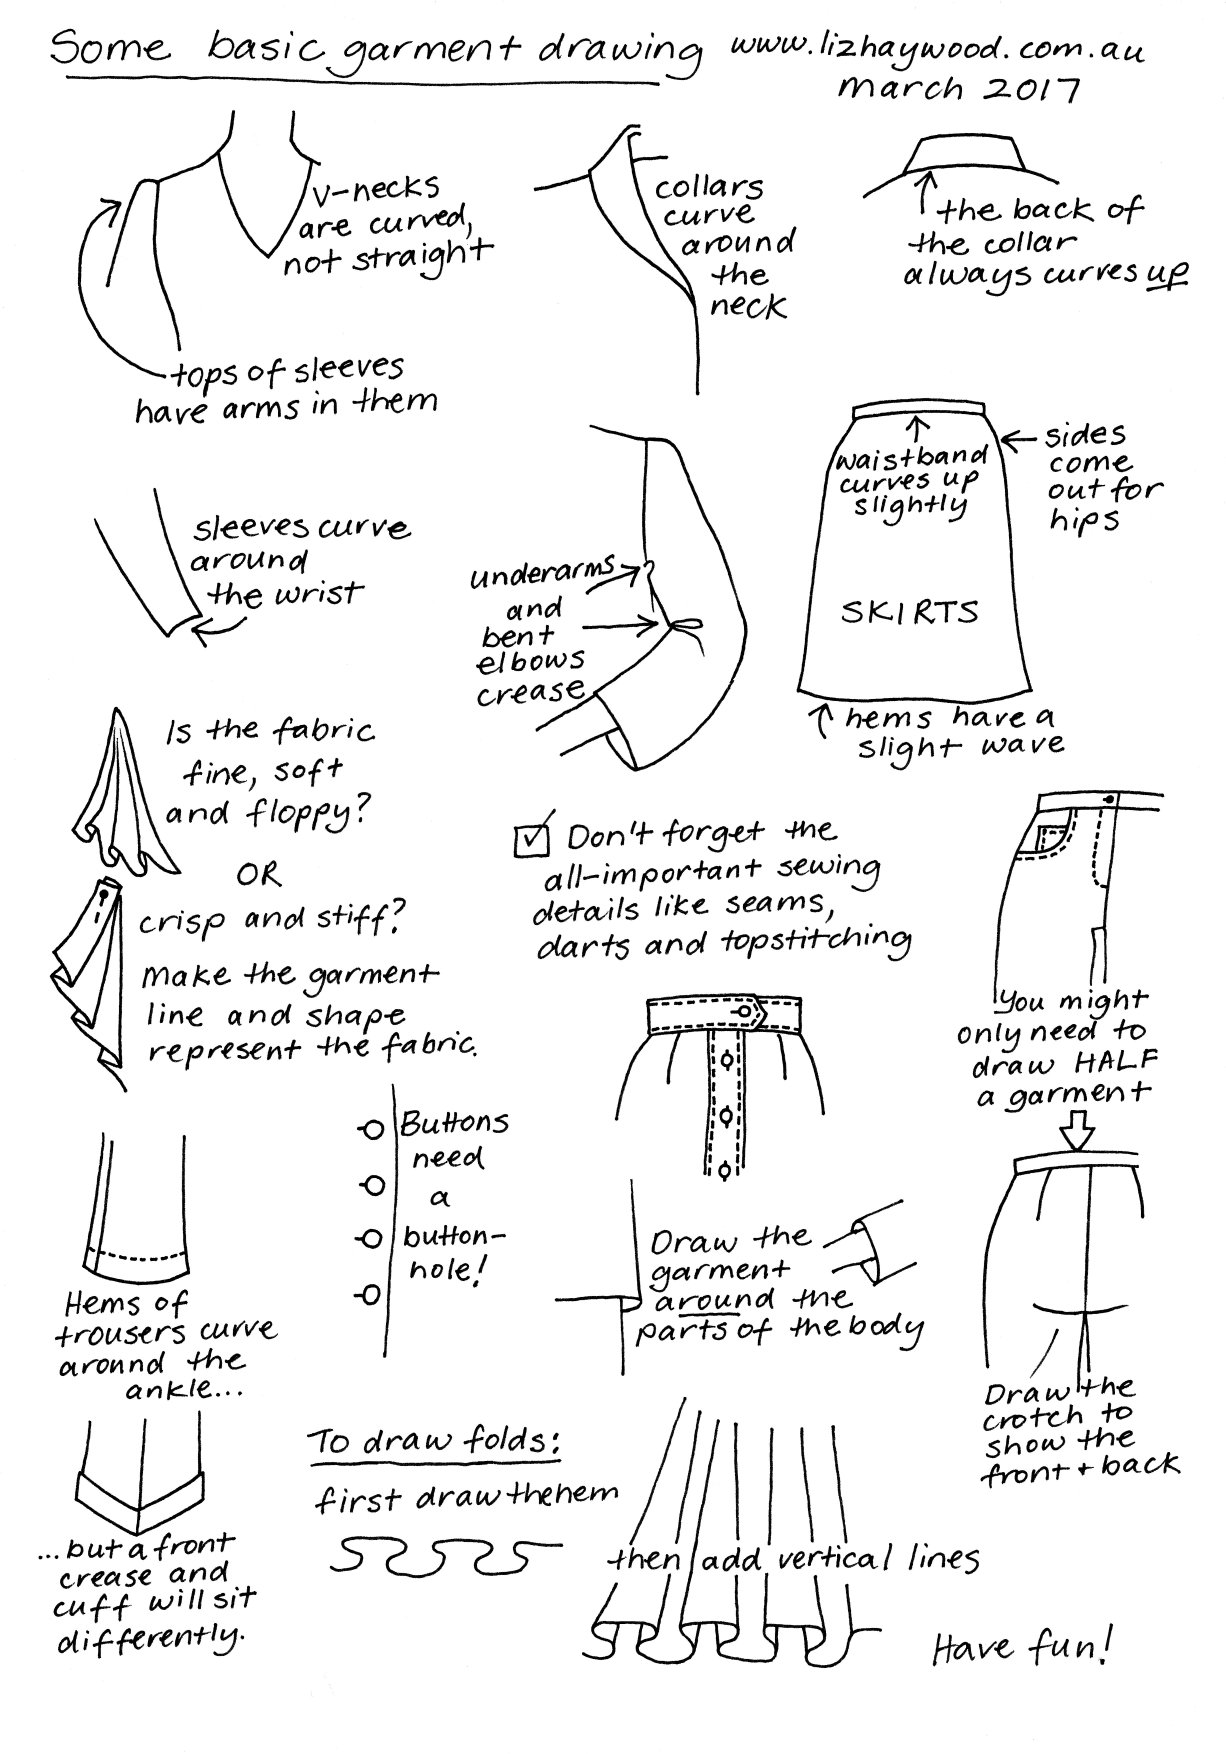 Some basic garment drawing
www.lizhaywood.com.au
march 2017
v-necks
are curved,
not straight
tops of sleeves
have arms in them
collars
curve
around
the
neck
the back of
the collar
always curves up
sleeves curve
around
the wrist
underarms
and
bent
elbows
crease
waistband
curves up
slightly
sides
come
out for
hips
SKIRTS
hems have a
slight wave
Is the fabric
fine, soft
and floppy?
OR
crisp and stiff?
make the garment
line and shape
represent the fabric.
Don't forget the
all-important sewing
details like seams,
darts and topstitching
You might
only need to
draw HALF
a garment
Buttons
need
a
button-
hole!
Draw the
garment
around the
parts of the body
Draw the
crotch to
show the
front + back
Hems of
trousers curve
around the
ankle...
...but a front
crease and
cuff will sit
differently.
To draw folds:
first draw the hem
then add vertical lines
Have fun!